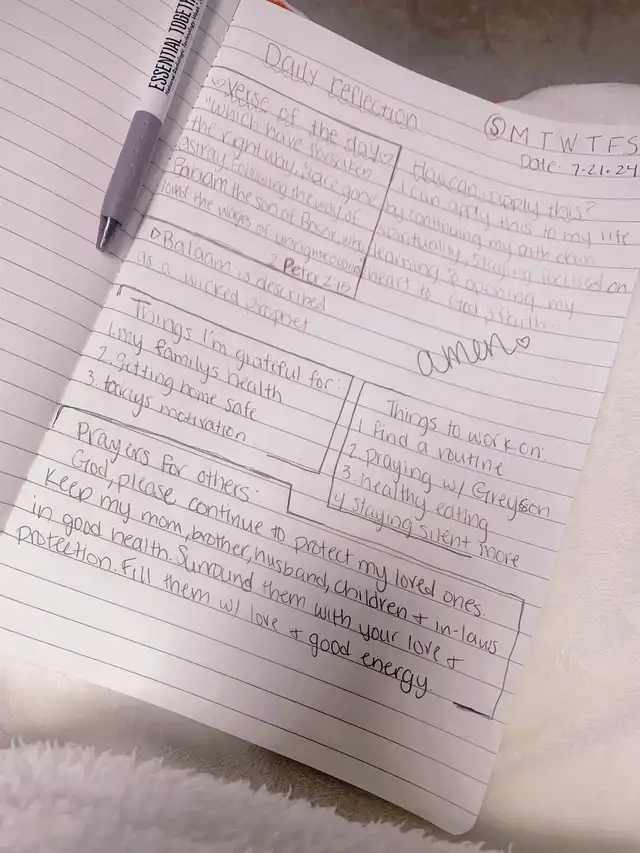 ESSENTIAL TOGETHER
Daily reflection
Ⓢ M T W T F S
Date: 7-21-24
♡Verse of the day♡
"which have forsaken
the right way, & are gone
astray, following the way of
Balaam the son of Bosor, who
loved the wages of unrighteousness
2 Peter 2:15
▷Balaam is described
as a wicked prophet
How can I apply this?
I can apply this to my life
by continuing my path down
spirituality, staying focused on
learning & opening my
heart to God & faith.
amen♡
Things I'm grateful for:
1. my familys health
2. getting home safe
3. todays motivation
Things to work on:
1 find a routine
2. praying w/ Greyson
3. healthy eating
4 staying silent more
Prayers for others:
God, please continue to protect my loved ones.
Keep my mom, brother, husband, children + in-laws
in good health. Surround them with your love +
protection. Fill them w/ love + good energy.